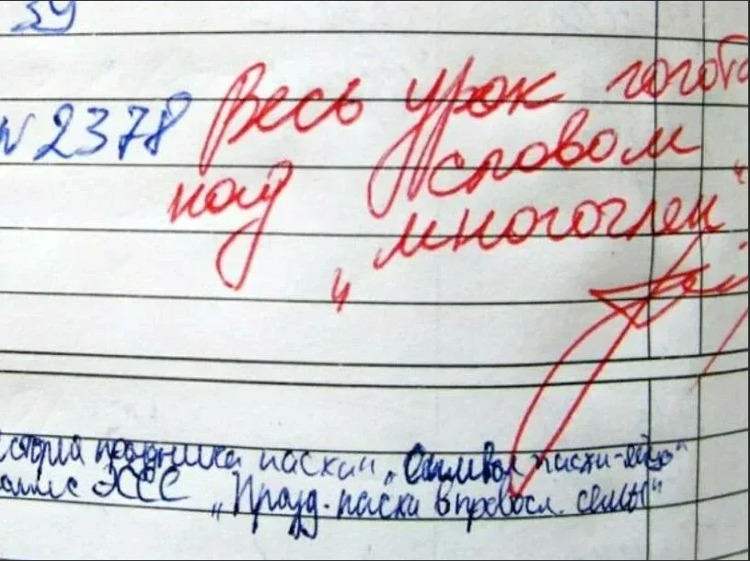 39
№ 2378 Весь урок гогота
над словом
"многочлен"
стория праздника пасхи „Символ пасхи-яйцо"
„Празд. пасхи в правосл. семье"